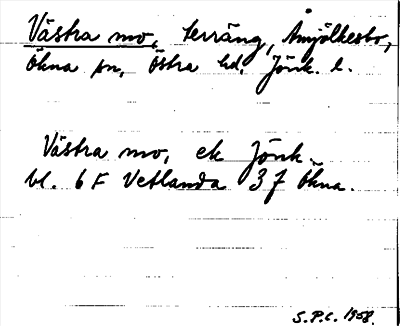 Västra mo, terräng, Åmjölkesbo,
Ökna sn, Östra hd, Jönk. l.
Västra mo, ek Jönk.
bl. 6 F Vetlanda 3 f Ökna.
S.P.C. 1958.